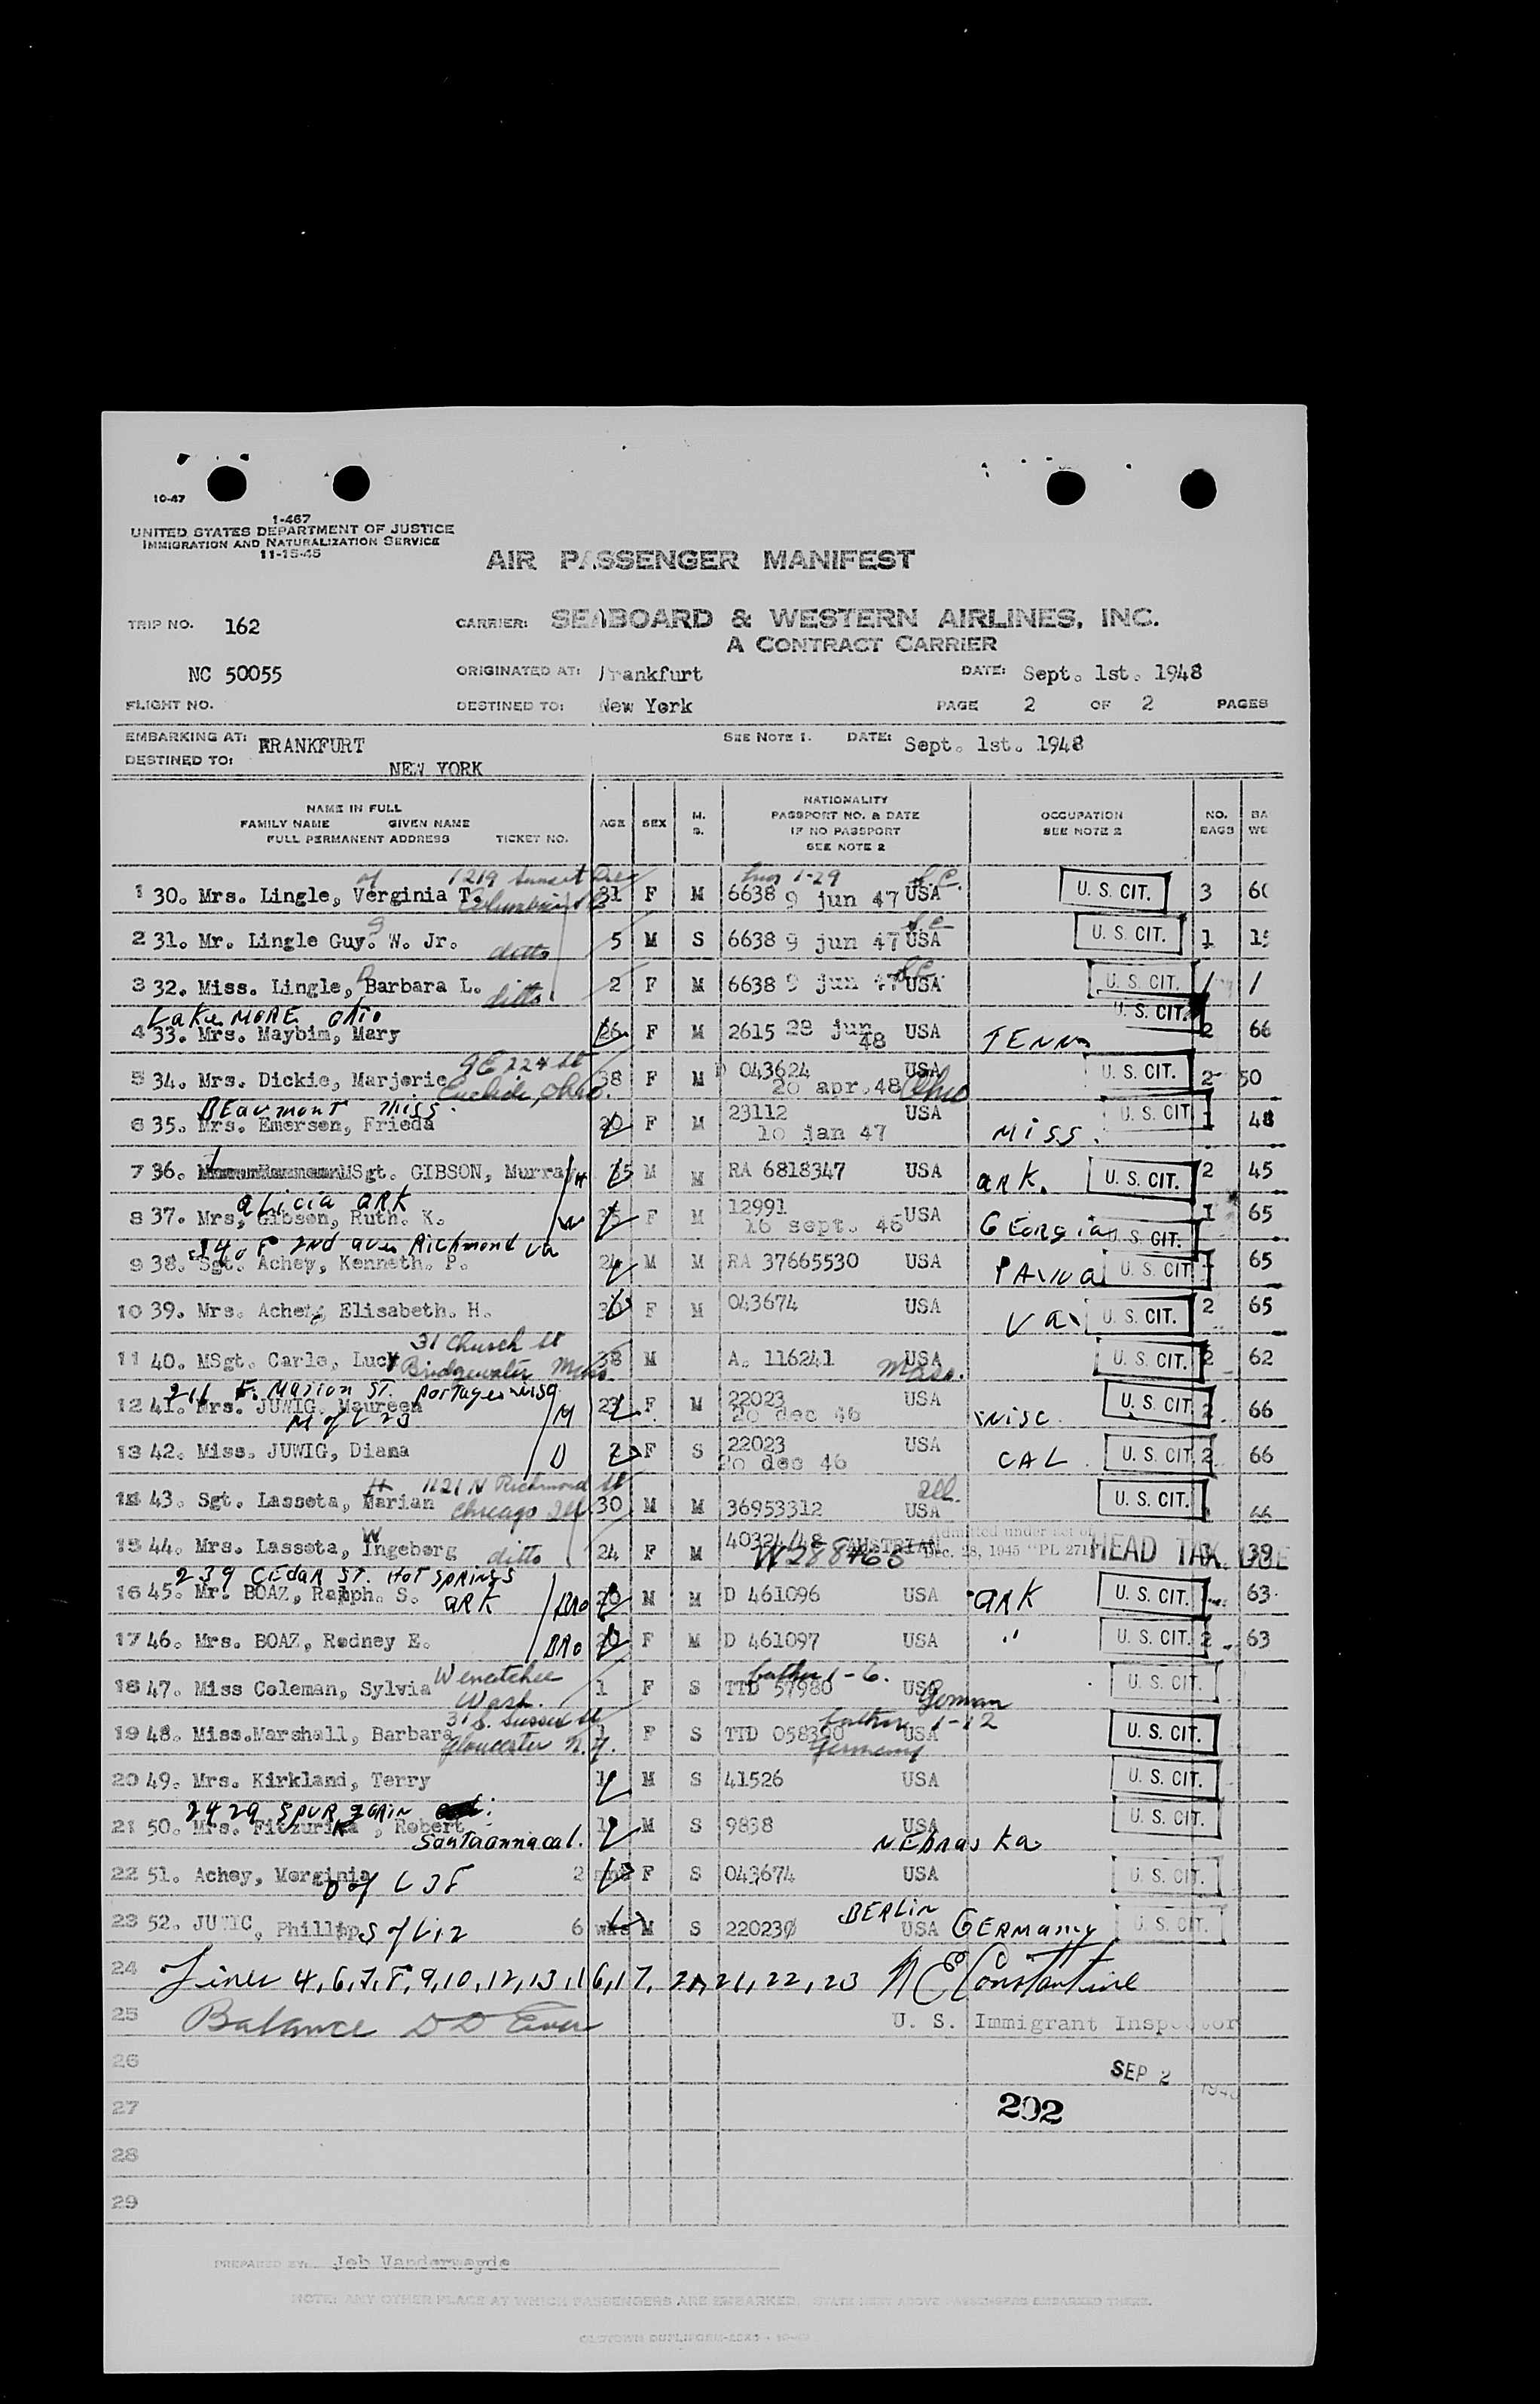 10-47
1-467
UNITED STATES DEPARTMENT OF JUSTICE
IMMIGRATION AND NATURALIZATION SERVICE
11-15-45
AIR PASSENGER MANIFEST
TRIP NO. 162 CARRIER: SEABOARD & WESTERN AIRLINES, INC.
A CONTRACT CARRIER
NC 50055 ORIGINATED AT: Frankfurt DATE: Sept. 1st. 1948
FLIGHT NO. DESTINED TO: New York PAGE 2 OF 2 PAGES
EMBARKING AT: FRANKFURT SEE NOTE 1. DATE: Sept. 1st. 1948
DESTINED TO: NEW YORK
NAME IN FULL
FAMILY NAME GIVEN NAME
FULL PERMANENT ADDRESS TICKET NO.
AGE SEX M. S.
NATIONALITY
PASSPORT NO. & DATE
IF NO PASSPORT
SEE NOTE 2
OCCUPATION
SEE NOTE 2
NO. BAGS
BA
WE
1219 Sunset 1-29 S.C.
1 30. Mrs. Lingle, Verginia T. Columbia 31 F M 6638 9 jun 47 USA U. S. CIT. 3 60
S.C.
2 31. Mr. Lingle Guy. W. Jr. ditto 5 M S 6638 9 jun 47 USA U. S. CIT. 1 15
S.C.
3 32. Miss. Lingle, Barbara L. ditto 2 F M 6638 9 jun 47 USA U. S. CIT. / /
LakeMORE OHio U. S. CIT.
4 33. Mrs. Maybim, Mary 26 F M 2615 28 jun 48 USA TENN 2 66
9 E 224 St
5 34. Mrs. Dickie, Marjorie Euclide, Ohio. 38 F M D 043624 20 apr. 48 USA Ohio U. S. CIT. 2 50
BEAUMONT Miss.
6 35. Mrs. Emersen, Frieda 20 F M 23112 10 jan 47 USA MISS. U. S. CIT. 1 48
7 36. MSgt. GIBSON, Murray H M M RA 6818347 USA ARK. U. S. CIT. 2 45
aLicia ARK
8 37. Mrs, Gibson, Ruth. K. W F M 12991 16 sept. 46 USA GEORgia U. S. CIT. 1 65
2nd ave Richmond va
9 38. Sgt. Achey, Kenneth. P. 24 M M RA 37665530 USA PAnna U. S. CIT. 65
10 39. Mrs. Achey, Elisabeth. H. F M 043674 USA Va. U. S. CIT. 2 65
31 Church St
11 40. MSgt. Carle, Lucy Bridgewater Mass. 38 M A. 116241 USA Mass. U. S. CIT. 2 62
216 E. Marion ST. Portage Wisc
12 41. Mrs. JUWIG. Maureen M of L 23 M F M 22023 20 dec 46 USA WISC. U. S. CIT. 2 66
13 42. Miss. JUWIG, Diana D 2 F S 22023 20 dec 46 USA CAL. U. S. CIT. 2 66
H 1121 N Richmond St Ill.
14 43. Sgt. Lasseta, Marian Chicago Ill 30 M M 36953312 USA U. S. CIT. 66
W Admitted under act of
15 44. Mrs. Lasseta, Ingeborg ditto 24 F M 40324/48 AUSTRIAN W288465 Dec. 28, 1945 "PL 271" HEAD TAX 39
239 CEDAR ST. HOT SPRINGS
16 45. Mr. BOAZ, Ralph. S. ARK BRO M M D 461096 USA ARK U. S. CIT. 63
17 46. Mrs. BOAZ, Rodney E. BRO F M D 461097 USA " U. S. CIT. 2 63
Wenatchee father 1-6.
18 47. Miss Coleman, Sylvia Wash. 1 F S TTD 57980 USA German U. S. CIT.
31 S. Sussex St father 1-12
19 48. Miss.Marshall, Barbara Gloucester N.J. 1 F S TTD 058390 USA Germany U. S. CIT.
20 49. Mrs. Kirkland, Terry 1 M S 41526 USA U. S. CIT.
2429 SPURgEOIN
21 50. Mrs. Fitzurika, Robert Santaanna cal. 1 M S 9838 USA NEbraska U. S. CIT.
22 51. Achey, Verginia D of L 38 2 F S 043674 USA U. S. CIT.
23 52. JUWIC, Phillip S of L 12 6 wks M S 22023 BERLIN USA GERMAny U. S. CIT.
24 Lines 4,6,7,8,9,10,12,13,16,17, 20,21,22,23 N E Constantine
25 Balance U. S. Immigrant Inspector
26 SEP 2 1948
27 202
28
29
PREPARED BY: Job Vanderweyde
NOTE: ANY OTHER PLACE AT WHICH PASSENGERS ARE EMBARKED, STATE NEXT ABOVE PASSENGERS EMBARKED THERE.